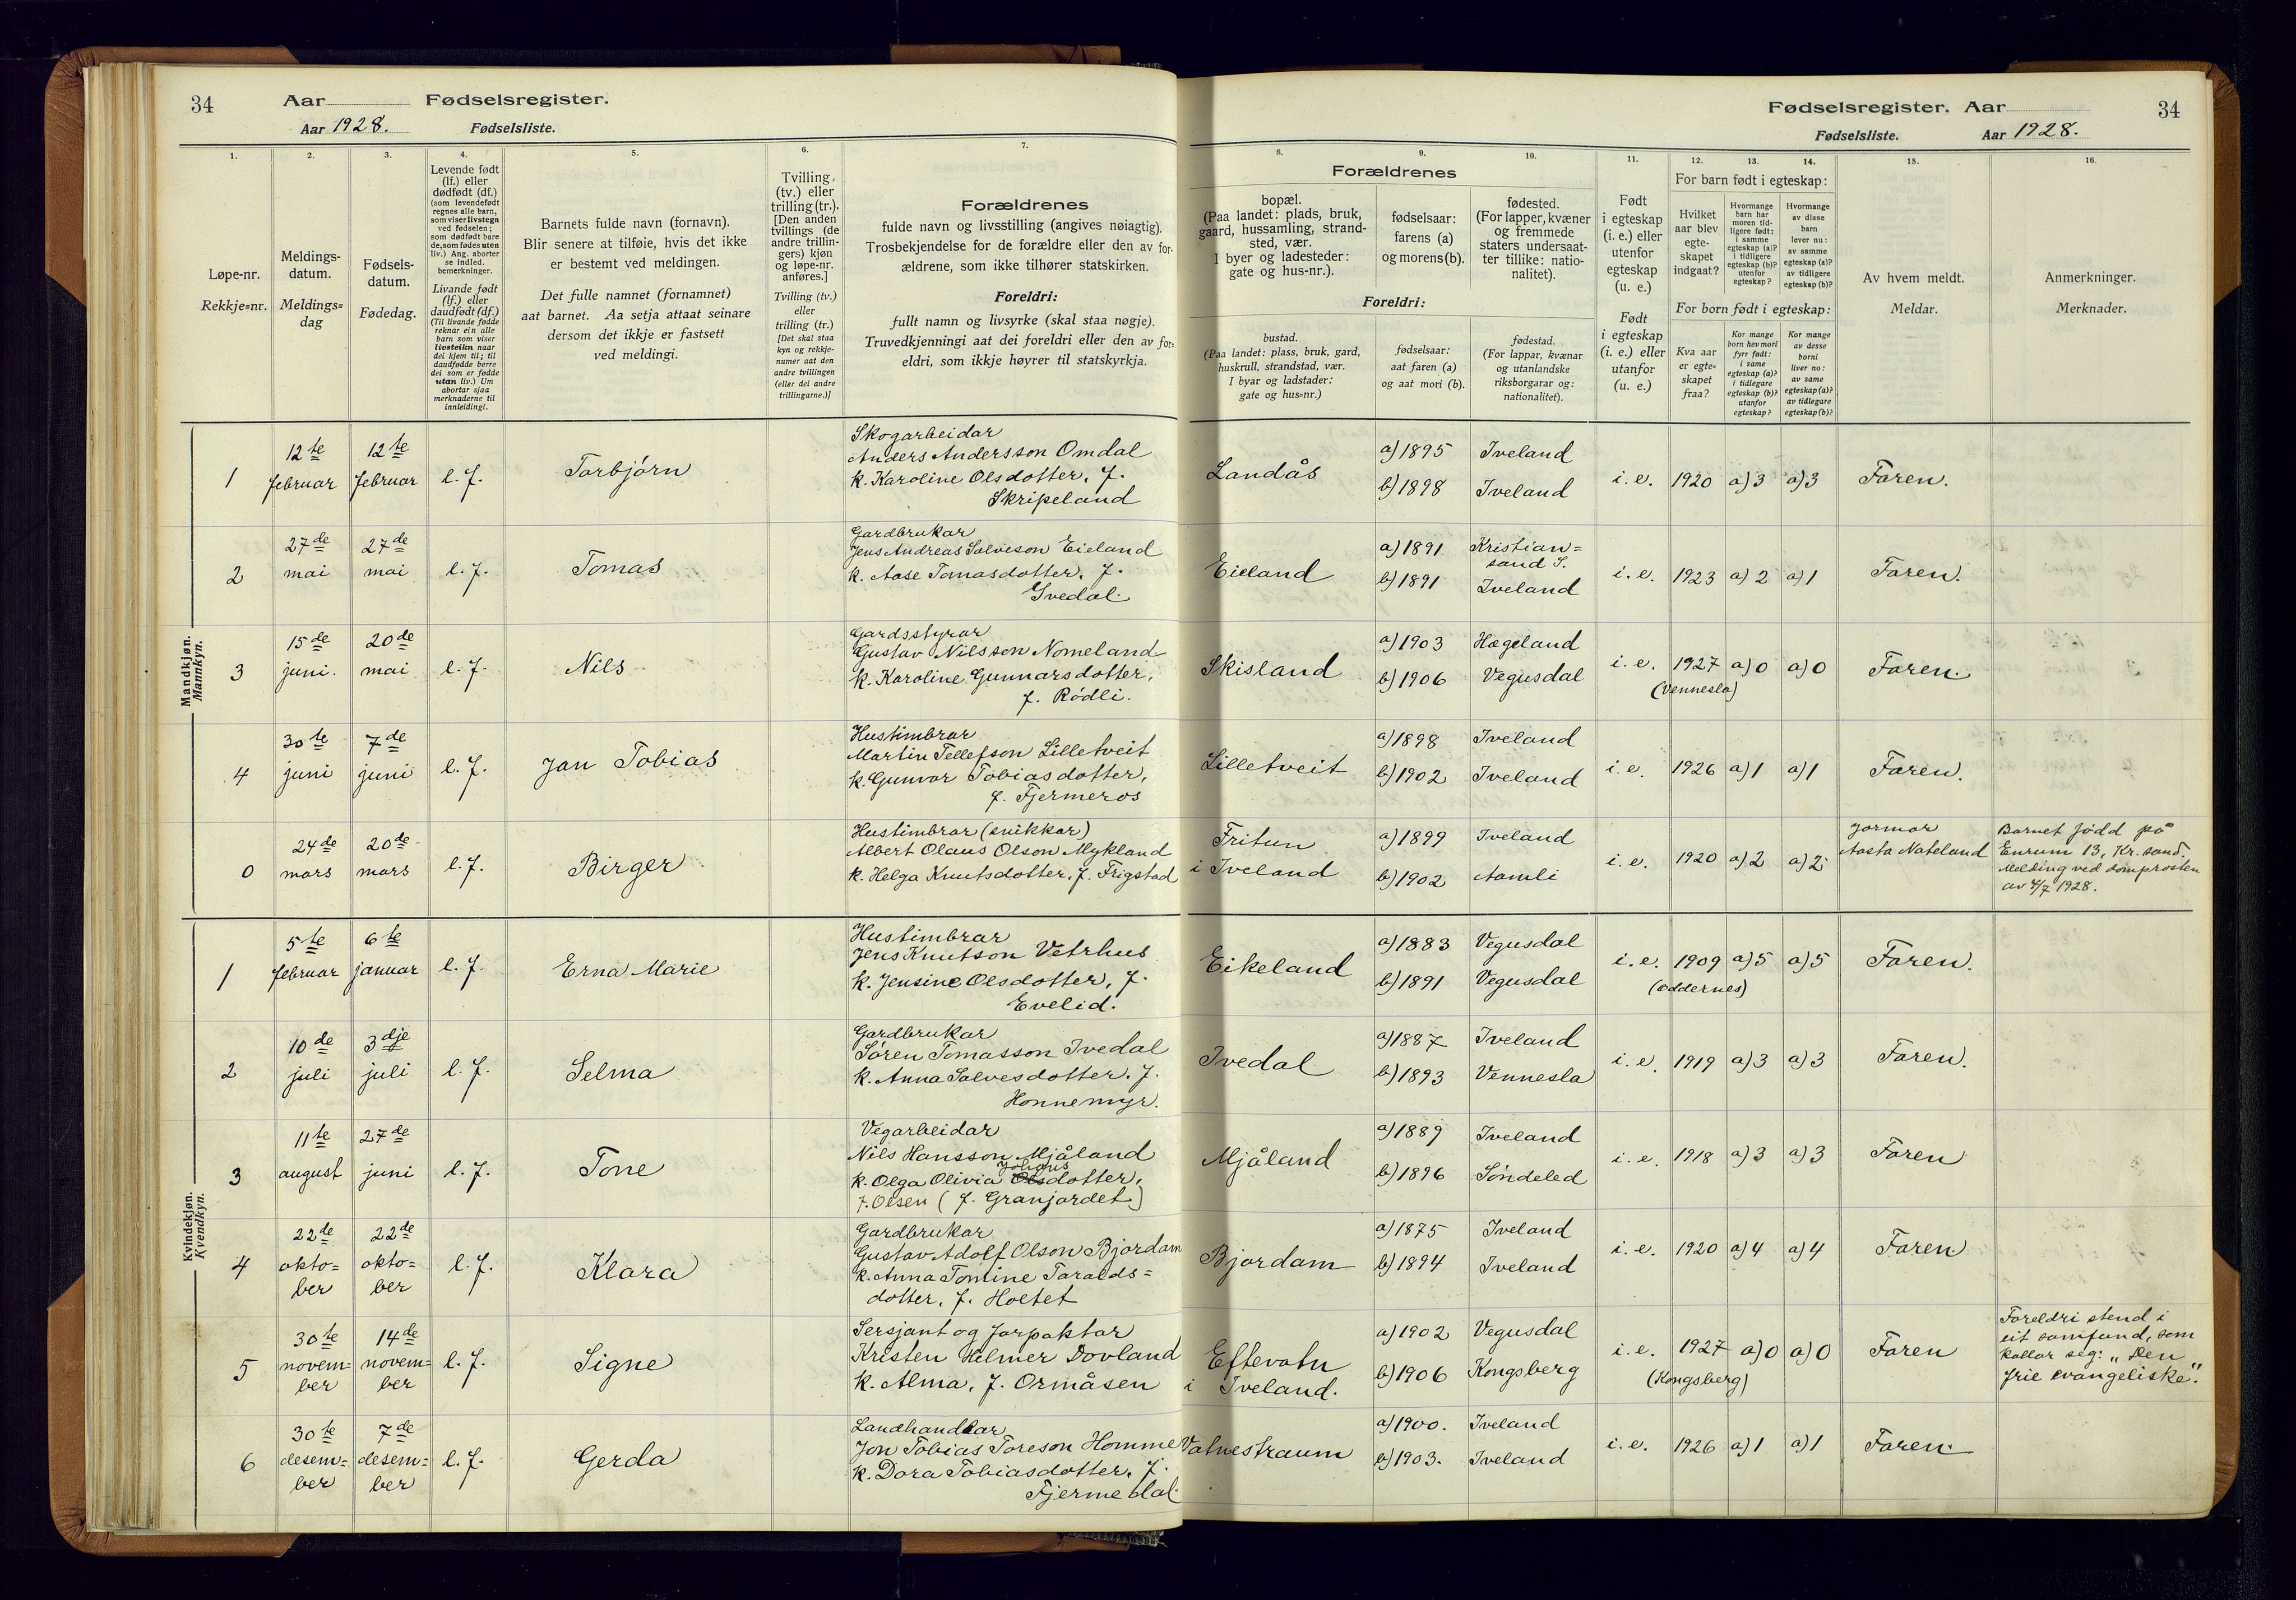 34 Aar Fødselsregister.
Aar 1928. Fødselsliste.
Fødselsregister. Aar 34
Fødselsliste. Aar 1928.
1.
Løpe-nr.
Rekkje=nr.
2.
Meldings-
datum.
Meldings=
dag
3.
Fødsels-
datum.
Fødedag.
4.
Levende født
(lf.) eller
dødfødt (df.)
(som levendefødt
regnes alle barn,
som viser livstegn
ved fødselen;
som dødfødt bare
de, som fødes uten
liv.) Ang. aborter
se indled.
bemerkninger.
Livande født
(lf.) eller
daudfødt (df.)
(Til livande fødde
reknar ein alle
barn som viser
livsteikn naar
dei kjem til; til
daudfødde berre
dei som er fødde
utan liv.) Um
abortar sjaa
merknaderne til
innleidingi.
5.
Barnets fulde navn (fornavn).
Blir senere at tilføie, hvis det ikke
er bestemt ved meldingen.
Det fulle namnet (fornamnet)
aat barnet. Aa setja attaat seinare
dersom det ikkje er fastsett
ved meldingi.
6.
Tvilling
(tv.) eller
trilling (tr.).
[Den anden
tvillings (de
andre trillin-
gers) kjøn
og løpe-nr.
anføres.]
Tvilling (tv.)
eller
trilling (tr.)
[Det skal staa
kyn og rekkje-
numer aat den
andre tvillingen
(eller dei andre
trillingarne.)]
7.
Forældrenes
fulde navn og livsstilling (angives nøiagtig).
Trosbekjendelse for de forældre eller den av for-
ældrene, som ikke tilhører statskirken.
Foreldri:
fullt namn og livsyrke (skal staa nøgje).
Truvedkjenningi aat dei foreldri eller den av for=
eldri, som ikkje høyrer til statskyrkja.
Forældrenes
8.
bopæl.
(Paa landet: plads, bruk,
gaard, hussamling, strand-
sted, vær.
I byer og ladesteder:
gate og hus-nr.).
9.
fødselsaar:
farens (a)
og morens (b).
10.
fødested.
(For lapper, kvæner
og fremmede
staters undersaat-
ter tillike: natio-
nalitet).
Foreldri:
bustad.
(Paa landet: plass, bruk, gard,
huskrull, strandstad, vær.
I byar og ladstader:
gate og hus=nr.)
fødselsaar:
aat faren (a)
og aat mori (b).
fødestad.
(For lappar, kvænar
og utanlandske
riksborgarar og:
nationalitet).
11.
Født
i egteskap
(i. e.) eller
utenfor
egteskap
(u. e.)
Født
i egteskap
(i. e.) eller
utanfor
(u. e.)
12. 13. 14.
For barn født i egteskap:
Hvilket
aar blev
egte-
skapet
indgaat?
Hvormange
barn har
moren tid-
ligere født:
i samme
egteskap (a)?
i tidligere
egteskap (b)?
utenfor
egteskap?
Hvormange
av disse
barn
lever nu:
av samme
egteskap (a)?
av tidligere
egteskap (b)?
For born født i egteskap:
Kva aar
er egte=
skapet
fraa?
Kor mange
born hev mori
fyrr født:
i same
egteskap (a)?
i tidlegare
egteskap (b)?
utanfor
egteskap?
Kor mange
av desse
borni
liver no:
av same
egteskap (a)?
av tidlegare
egteskap (b)?
15.
Av hvem meldt.
Meldar.
16.
Anmerkninger.
Merknader.
Mandkjøn.
Mannkyn.
1 12te februar 12te februar l. f. Torbjørn
Skogarbeidar
Anders Andersson Omdal
k. Karoline Olsdotter, f.
Skripeland
Landås a) 1895 Iveland
b) 1898 Iveland
i. e. 1920 a) 3 a) 3 Faren.
2 27de mai 27de mai l. f. Tomas
Gardbrukar
Jens Andreas Salveson Eieland
k. Aase Tomasdotter, f.
Ivedal.
Eieland a) 1891 Kristian=
sand S.
b) 1891 Iveland
i. e. 1923 a) 2 a) 1 Faren.
3 15de juni. 20de mai l. f. Nils
Gardsstyrar
Gustav Nilsson Nomeland
k. Karoline Gunnarsdotter,
f. Rødli.
Skisland a) 1903 Hægeland
b) 1906 Vegusdal
i. e. 1927 a) 0 a) 0 Faren.
(Vennesla)
4 30te juni 7de juni l. f. Jan Tobias
Hustimbrar
Martin Tellefson Lilletveit
k. Gunvor Tobiasdotter,
f. Fjermeros
Lilletveit a) 1898 Iveland
b) 1902 Iveland
i. e. 1926 a) 1 a) 1 Faren.
0 24de mars 20de mars l. f. Birger
Hustimbrar (snikkar)
Albert Olaus Olson Mykland
k. Helga Knutsdotter, f. Frigstad
Fritun
i Iveland
a) 1899 Iveland
b) 1902 Aamli
i. e. 1920 a) 2 a) 2
Jormor
Aasta Nateland
Barnet fødd på
Enrum 13, Kr.sand.
Melding ved domprosten
av 4/7 1928.
Kvindekjøn.
Kvendkyn.
1 5te februar 6te januar l. f. Erna Marie
Hustimbrar
Jens Knutson Vetrhus
k. Jensine Olsdotter, f.
Evelid.
Eikeland a) 1883 Vegusdal
b) 1891 Vegusdal
i. e. 1909 a) 5 a) 5 Faren.
(Oddernes)
2 10de juli 3dje juli l. f. Selma
Gardbrukar
Søren Tomasson Ivedal
k. Anna Salvesdotter, f.
Honnemyr.
Ivedal a) 1887 Iveland
b) 1893 Vennesla
i. e. 1919 a) 3 a) 3 Faren.
3 11te august 27de juni l. f. Tone
Vegarbeidar
Nils Hansson Mjåland
k. Olga Olivia Olsdotter,
f. Olsen (f. Granjordet)
Mjåland a) 1889 Iveland
b) 1896 Søndeled
i. e. 1918 a) 3 a) 3 Faren
4 22de okto=ber 22de okto=ber l. f. Klara
Gardbrukar
Gustav Adolf Olson Bjordam
k. Anna Tomine Taralds=
dotter, f. Holtet
Bjordam a) 1875 Iveland
b) 1894 Iveland
i. e. 1920 a) 4 a) 4 Faren
5 30te novem=ber 14de novem=ber l. f. Signe
Sersjant og forpaktar
Kristen Helmer Dovland
k. Alma, f. Ormåsen
Eftevatn
i Iveland.
a) 1902 Vegusdal
b) 1906 Kongsberg
i. e. 1927 a) 0 a) 0 Faren
(Kongsberg)
Foreldri stend i
eit samfund, som
kallar seg: „Den
frie evangeliske".
6 30te desem=ber 7de desem=ber l. f. Gerda
Landhandlar
Jon Tobias Toreson Homme
k. Dora Tobiasdotter, f.
Fjermedal.
Vatnestraum a) 1900. Iveland
b) 1903. Iveland
i. e. 1926 a) 1 a) 1 Faren.